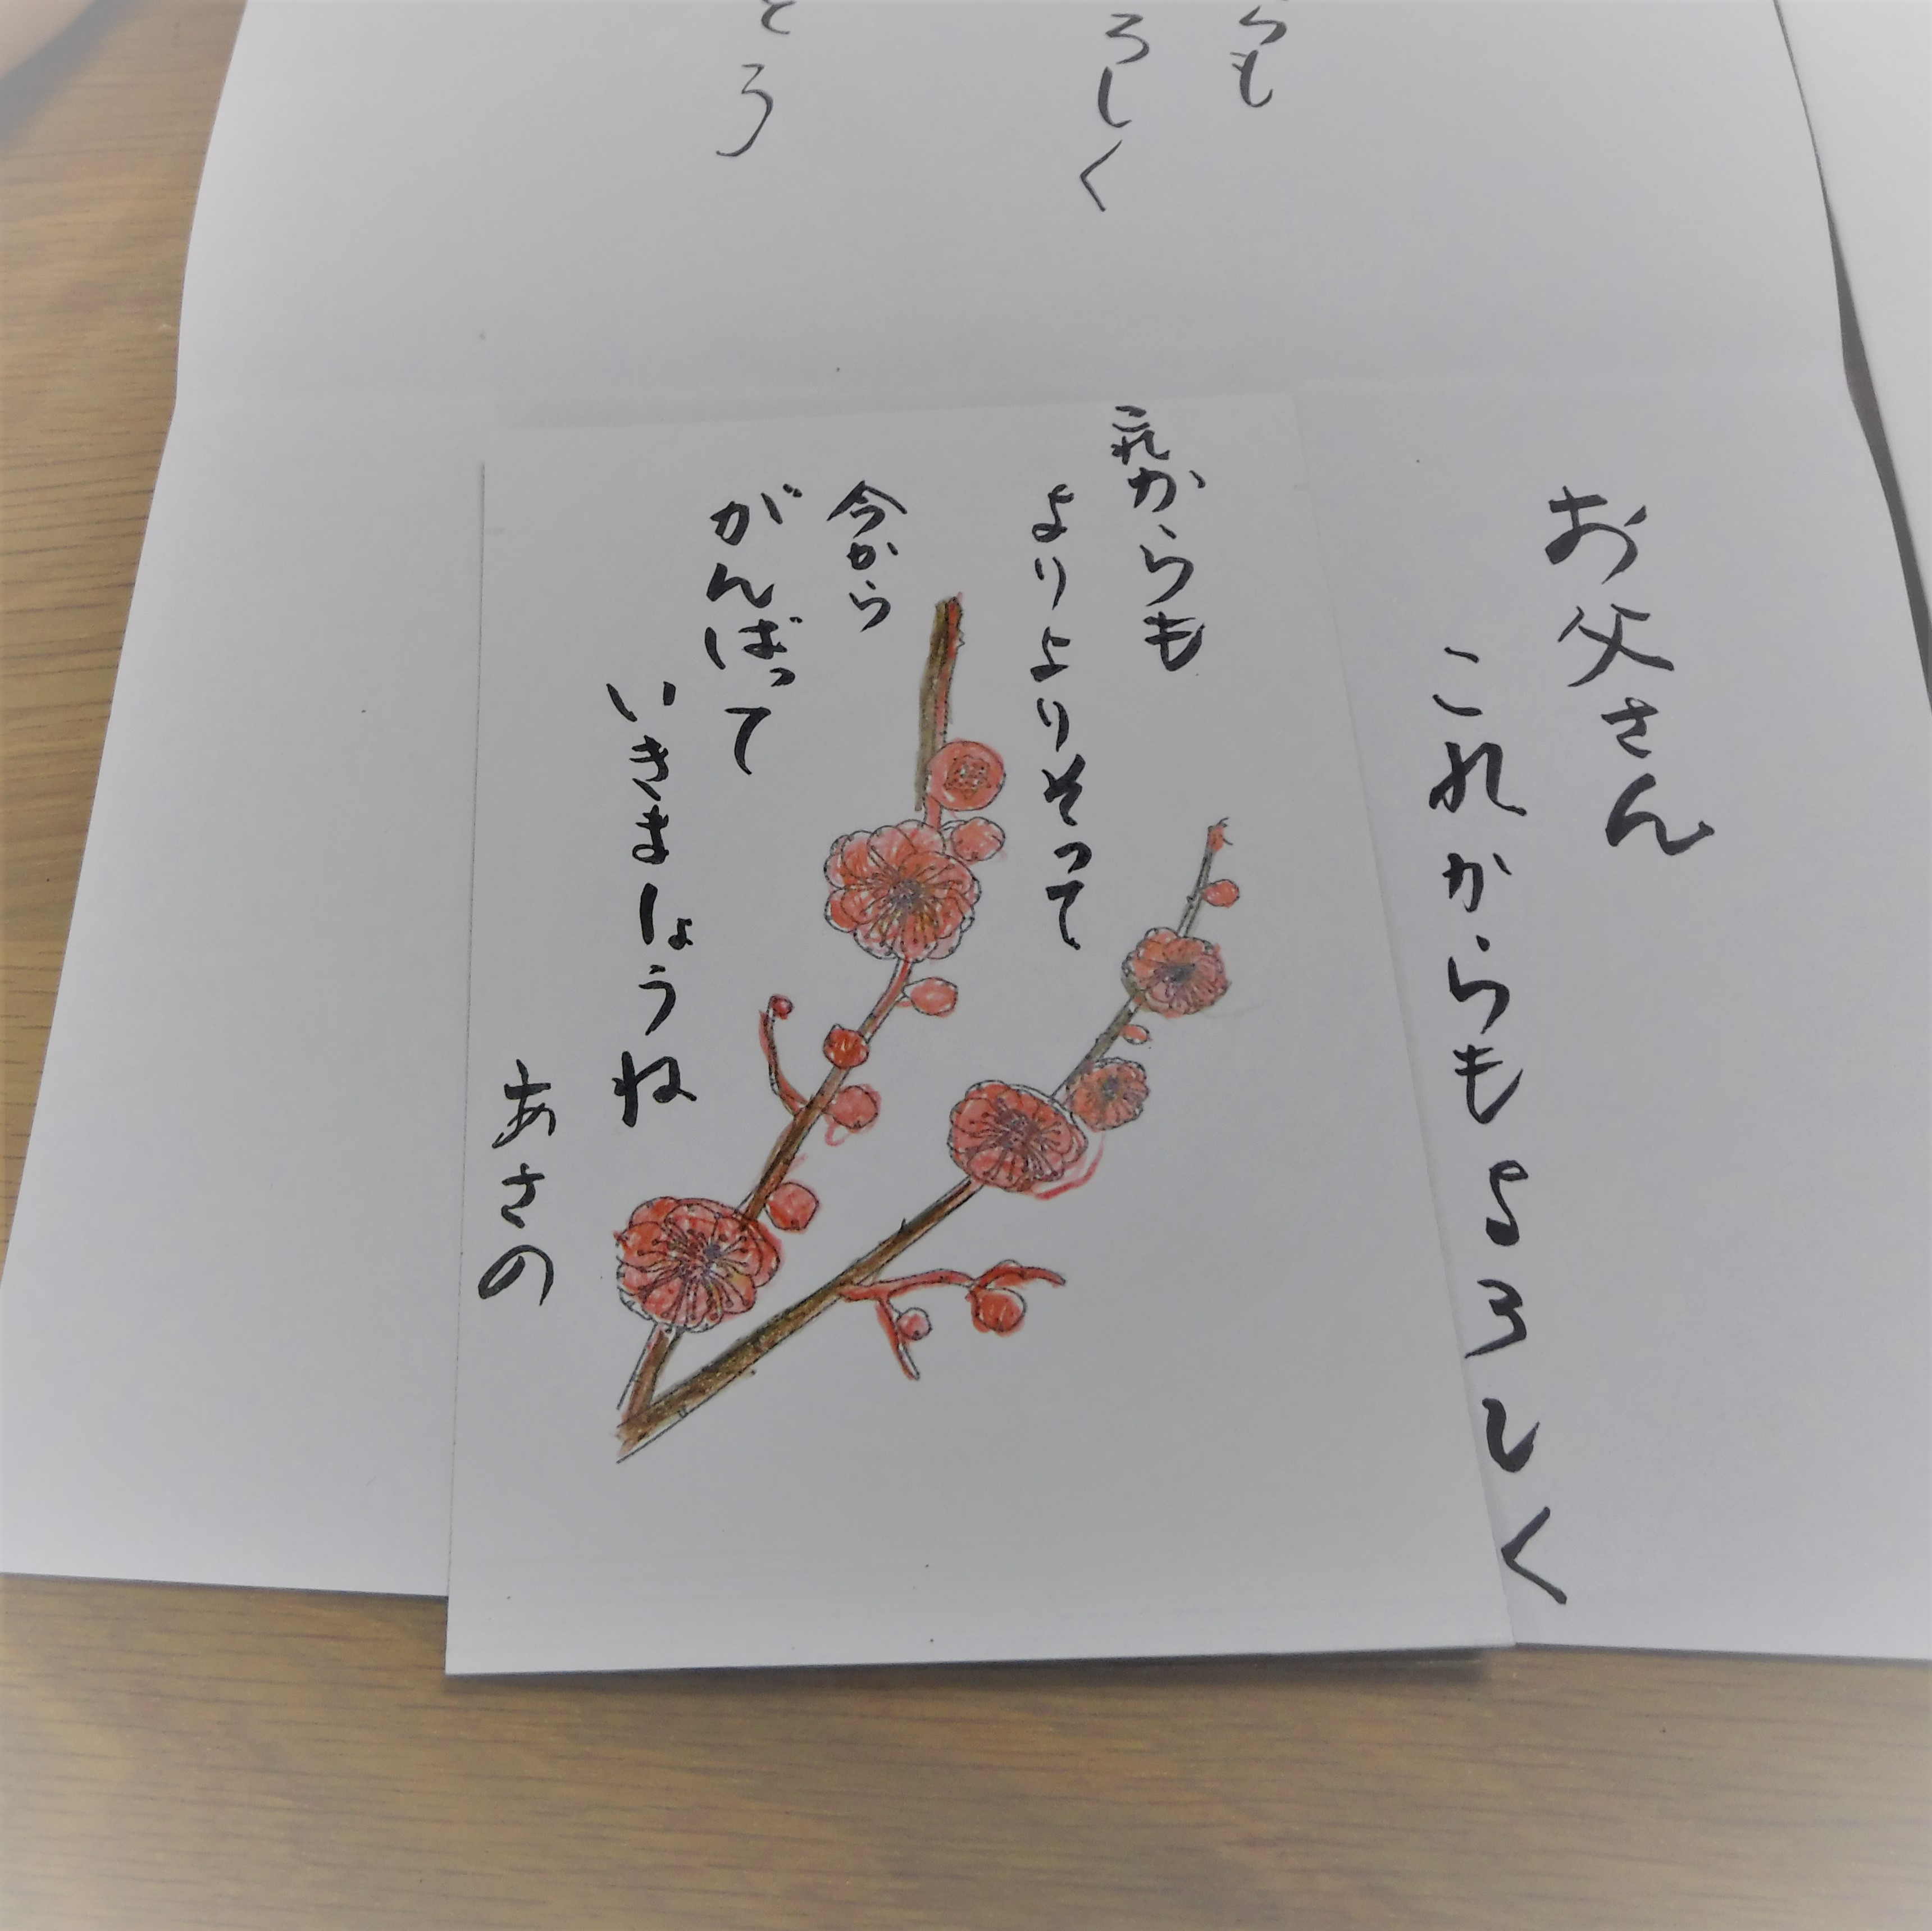 らも
ろしく
とう
お父さん
これからもよろしく
これからも
よりよりそって
今から
がんばって
いきましょうね
あさの